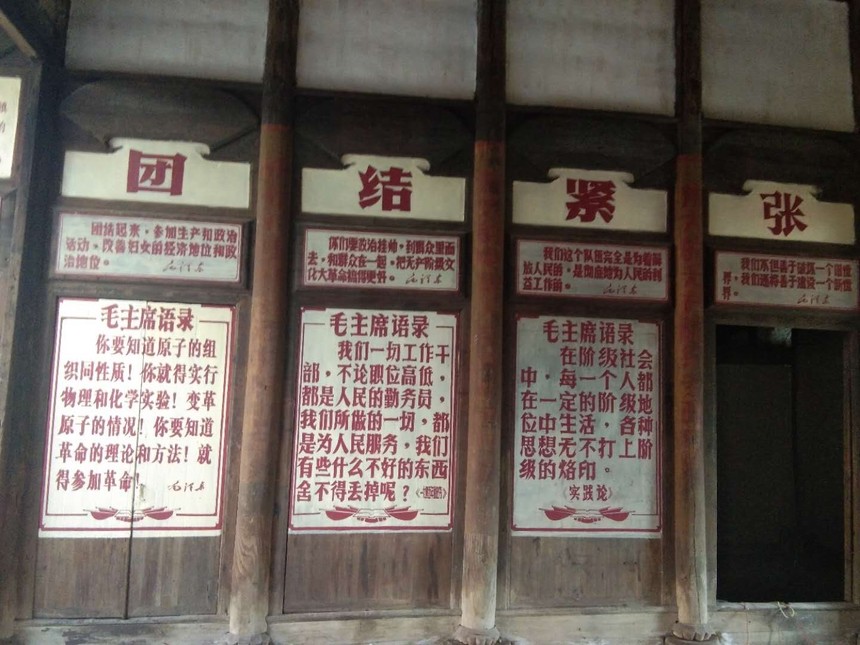 团
结
紧
张
团结起来，参加生产和政治
活动，改善妇女的经济地位和政
治地位。
毛泽东
你们要政治挂帅，到群众里面
去，和群众在一起，把无产阶级文
化大革命搞得更好。
毛泽东
我们这个队伍完全是为着解
放人民的，是彻底地为人民的利
益工作的。
毛泽东
我们不但善于破坏一个旧世
界，我们还将善于建设一个新世
界。
毛泽东
毛主席语录
你要知道原子的组
织同性质！你就得实行
物理和化学实验！变革
原子的情况！你要知道
革命的理论和方法！就
得参加革命！
毛泽东
毛主席语录
我们一切工作干
部，不论职位高低，
都是人民的勤务员，
我们所做的一切，都
是为人民服务，我们
有些什么不好的东西
舍不得丢掉呢？
毛主席语录
在阶级社会
中，每一个人都
在一定的阶级地
位中生活，各种
思想无不打上阶
级的烙印。
《实践论》